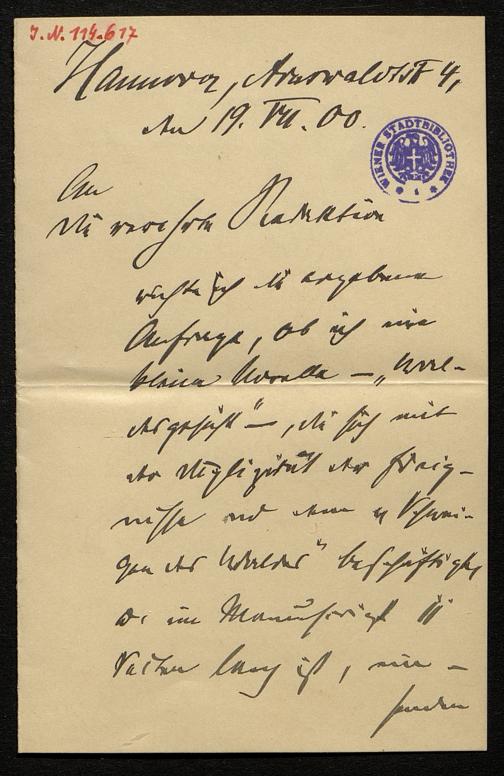 J.N. 114.617
Hannover, Arnswaldtstr 4,
den 19. VII. 00.
WIENER STADTBIBLIOTHEK
An
die verehrte Redaktion
richte ich die ergebene
Anfrage, ob ich eine
kleine Novelle — „Wal-
desgespräch" —, die sich mit
der Duplizität der Ereig-
nisse und dem „Schwei-
gen des Waldes" beschäftigt,
u. im Manuskript 11
Seiten lang ist, ein-
senden